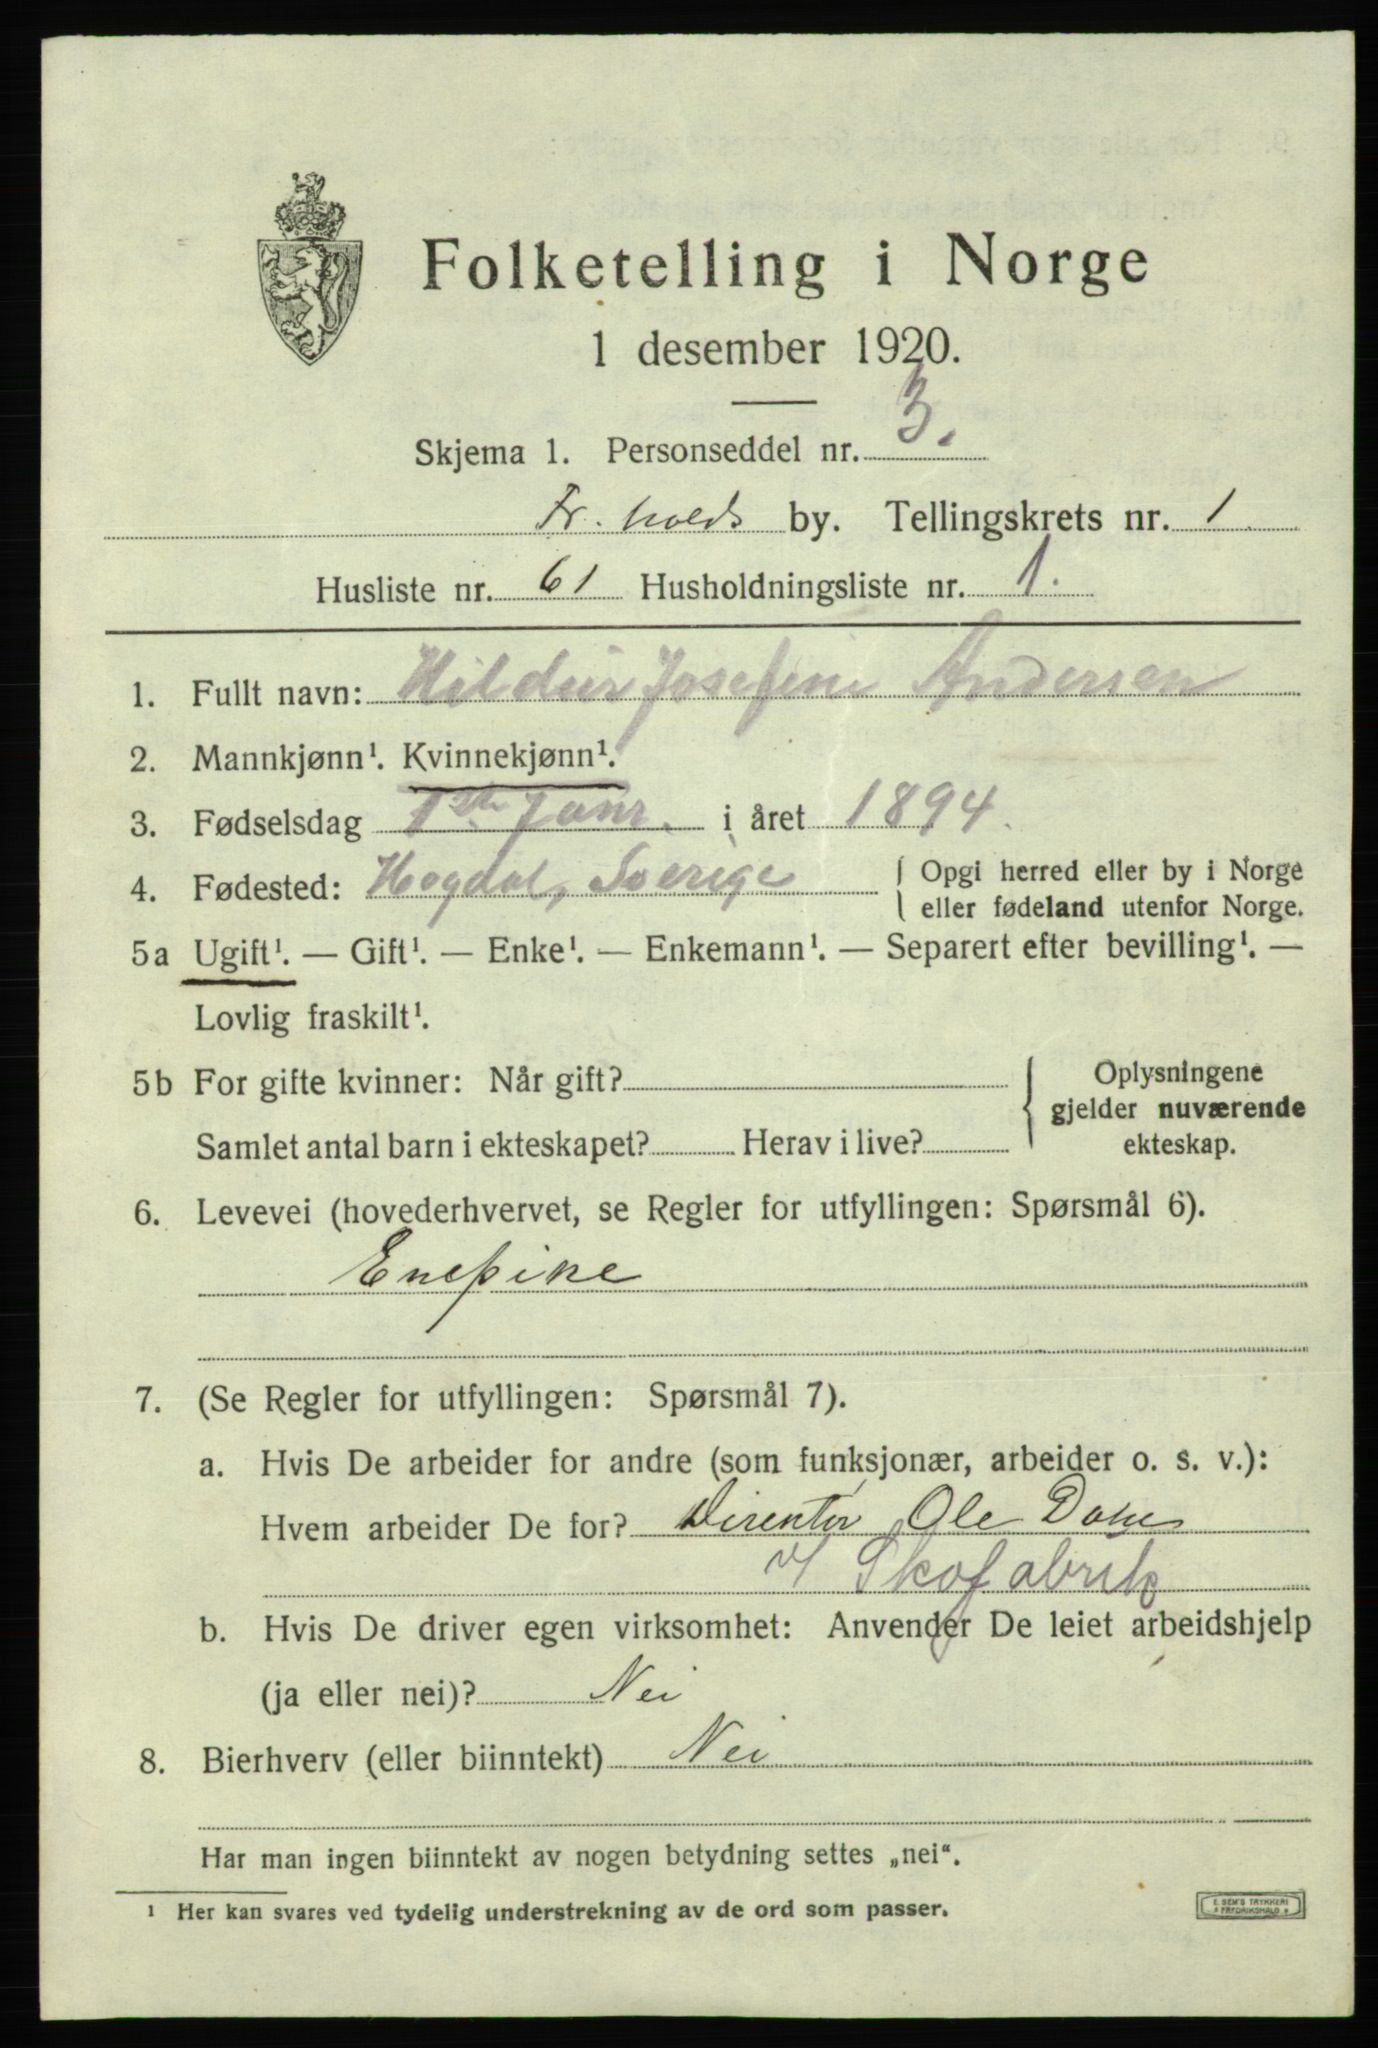 Folketelling i Norge
1 desember 1920.
Skjema 1. Personseddel nr. 3.
Fr.halds by. Tellingskrets nr. 1
Husliste nr. 61 Husholdningsliste nr. 1.
1. Fullt navn: Hildur Josefine Andersen
2. Mannkjønn¹. Kvinnekjønn¹.
3. Fødselsdag 1ste Janr. i året 1894.
4. Fødested: Hogdal, Sverige { Opgi herred eller by i Norge
eller fødeland utenfor Norge.
5a Ugift¹. — Gift¹. — Enke¹. — Enkemann¹. — Separert efter bevilling¹. —
Lovlig fraskilt¹.
5b For gifte kvinner: Når gift? { Oplysningene
gjelder nuværende
Samlet antal barn i ekteskapet? Herav i live? ekteskap.
6. Levevei (hovederhvervet, se Regler for utfyllingen: Spørsmål 6).
Enepike
7. (Se Regler for utfyllingen: Spørsmål 7).
a. Hvis De arbeider for andre (som funksjonær, arbeider o. s. v.):
Hvem arbeider De for? Direntør Ole
v/ Skofabrik
b. Hvis De driver egen virksomhet: Anvender De leiet arbeidshjelp
(ja eller nei)? Nei
8. Bierhverv (eller biinntekt) Nei
Har man ingen biinntekt av nogen betydning settes „nei“.
¹ Her kan svares ved tydelig understrekning av de ord som passer.
E. SEM'S TRYKKERI
FREDRIKSHALD